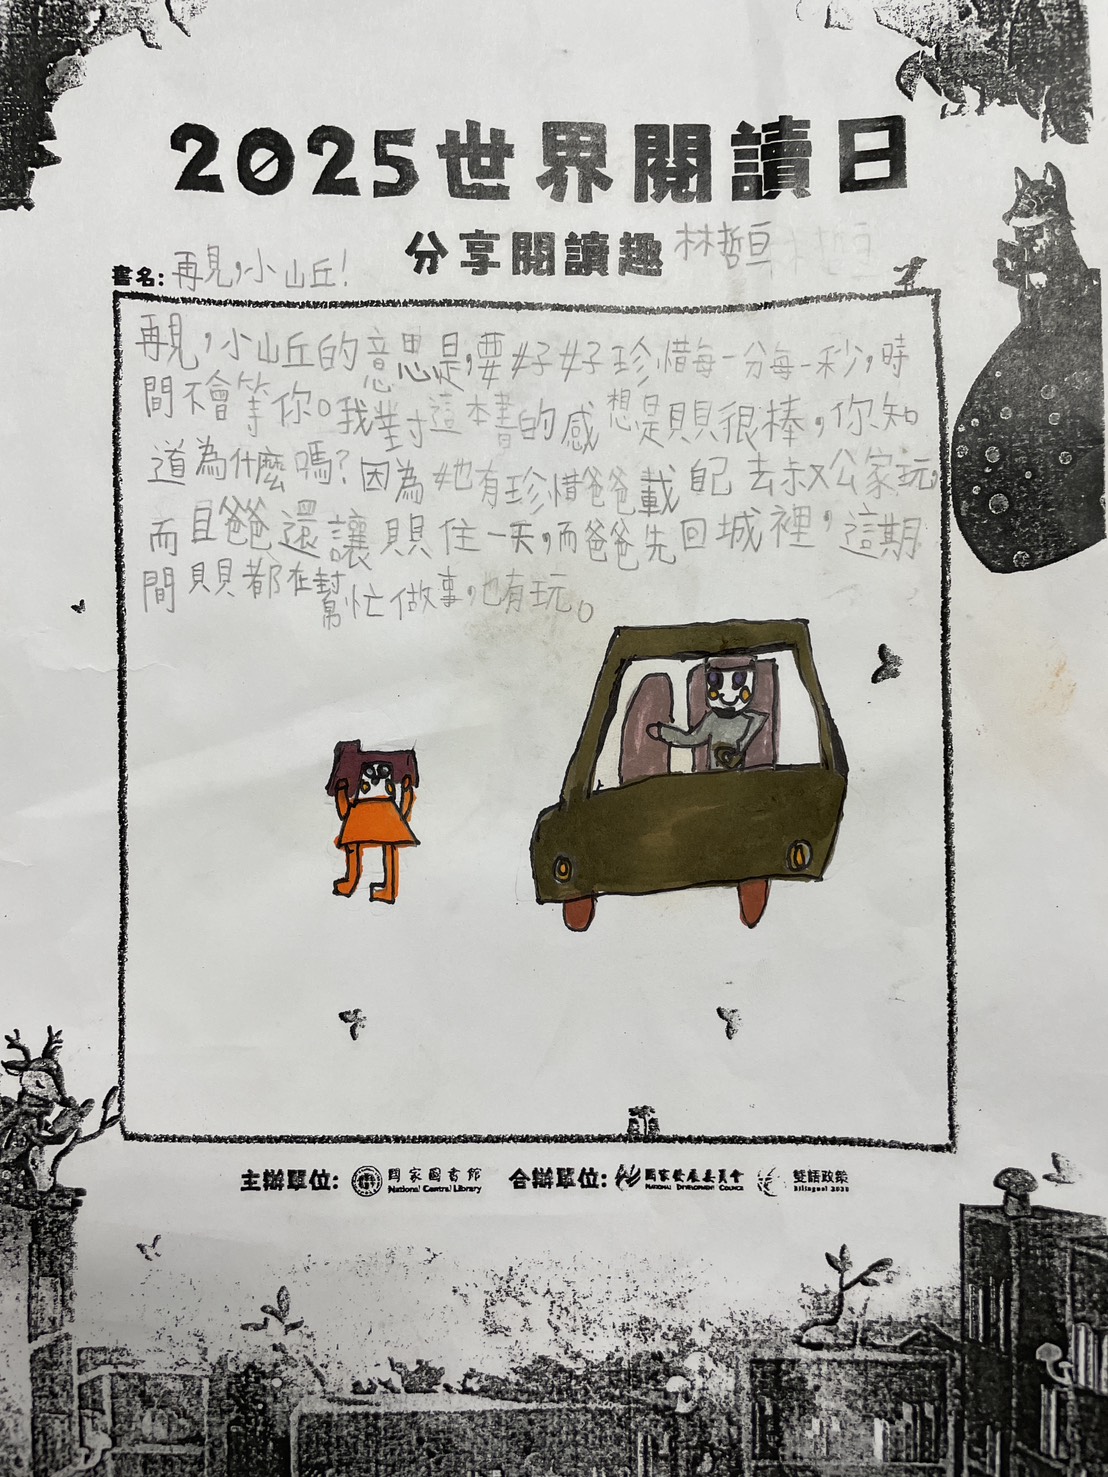 2025世界閱讀日
分享閱讀趣 林哲亘
書名：再見，小山丘！
再見，小山丘的意思是，要好好珍惜每一分每一秒，時
間不會等你。我對這本書的感想是貝貝很棒，你知
道為什麼嗎？因為她有珍惜爸爸載自己去叔公家玩，
而且爸爸還讓貝貝住一天，而爸爸先回城裡，這期
間貝貝都在幫忙做事，也有玩。
主辦單位： 國家圖書館 National Central Library 合辦單位： 國家發展委員會 National Development Council 雙語政策 Bilingual 2030